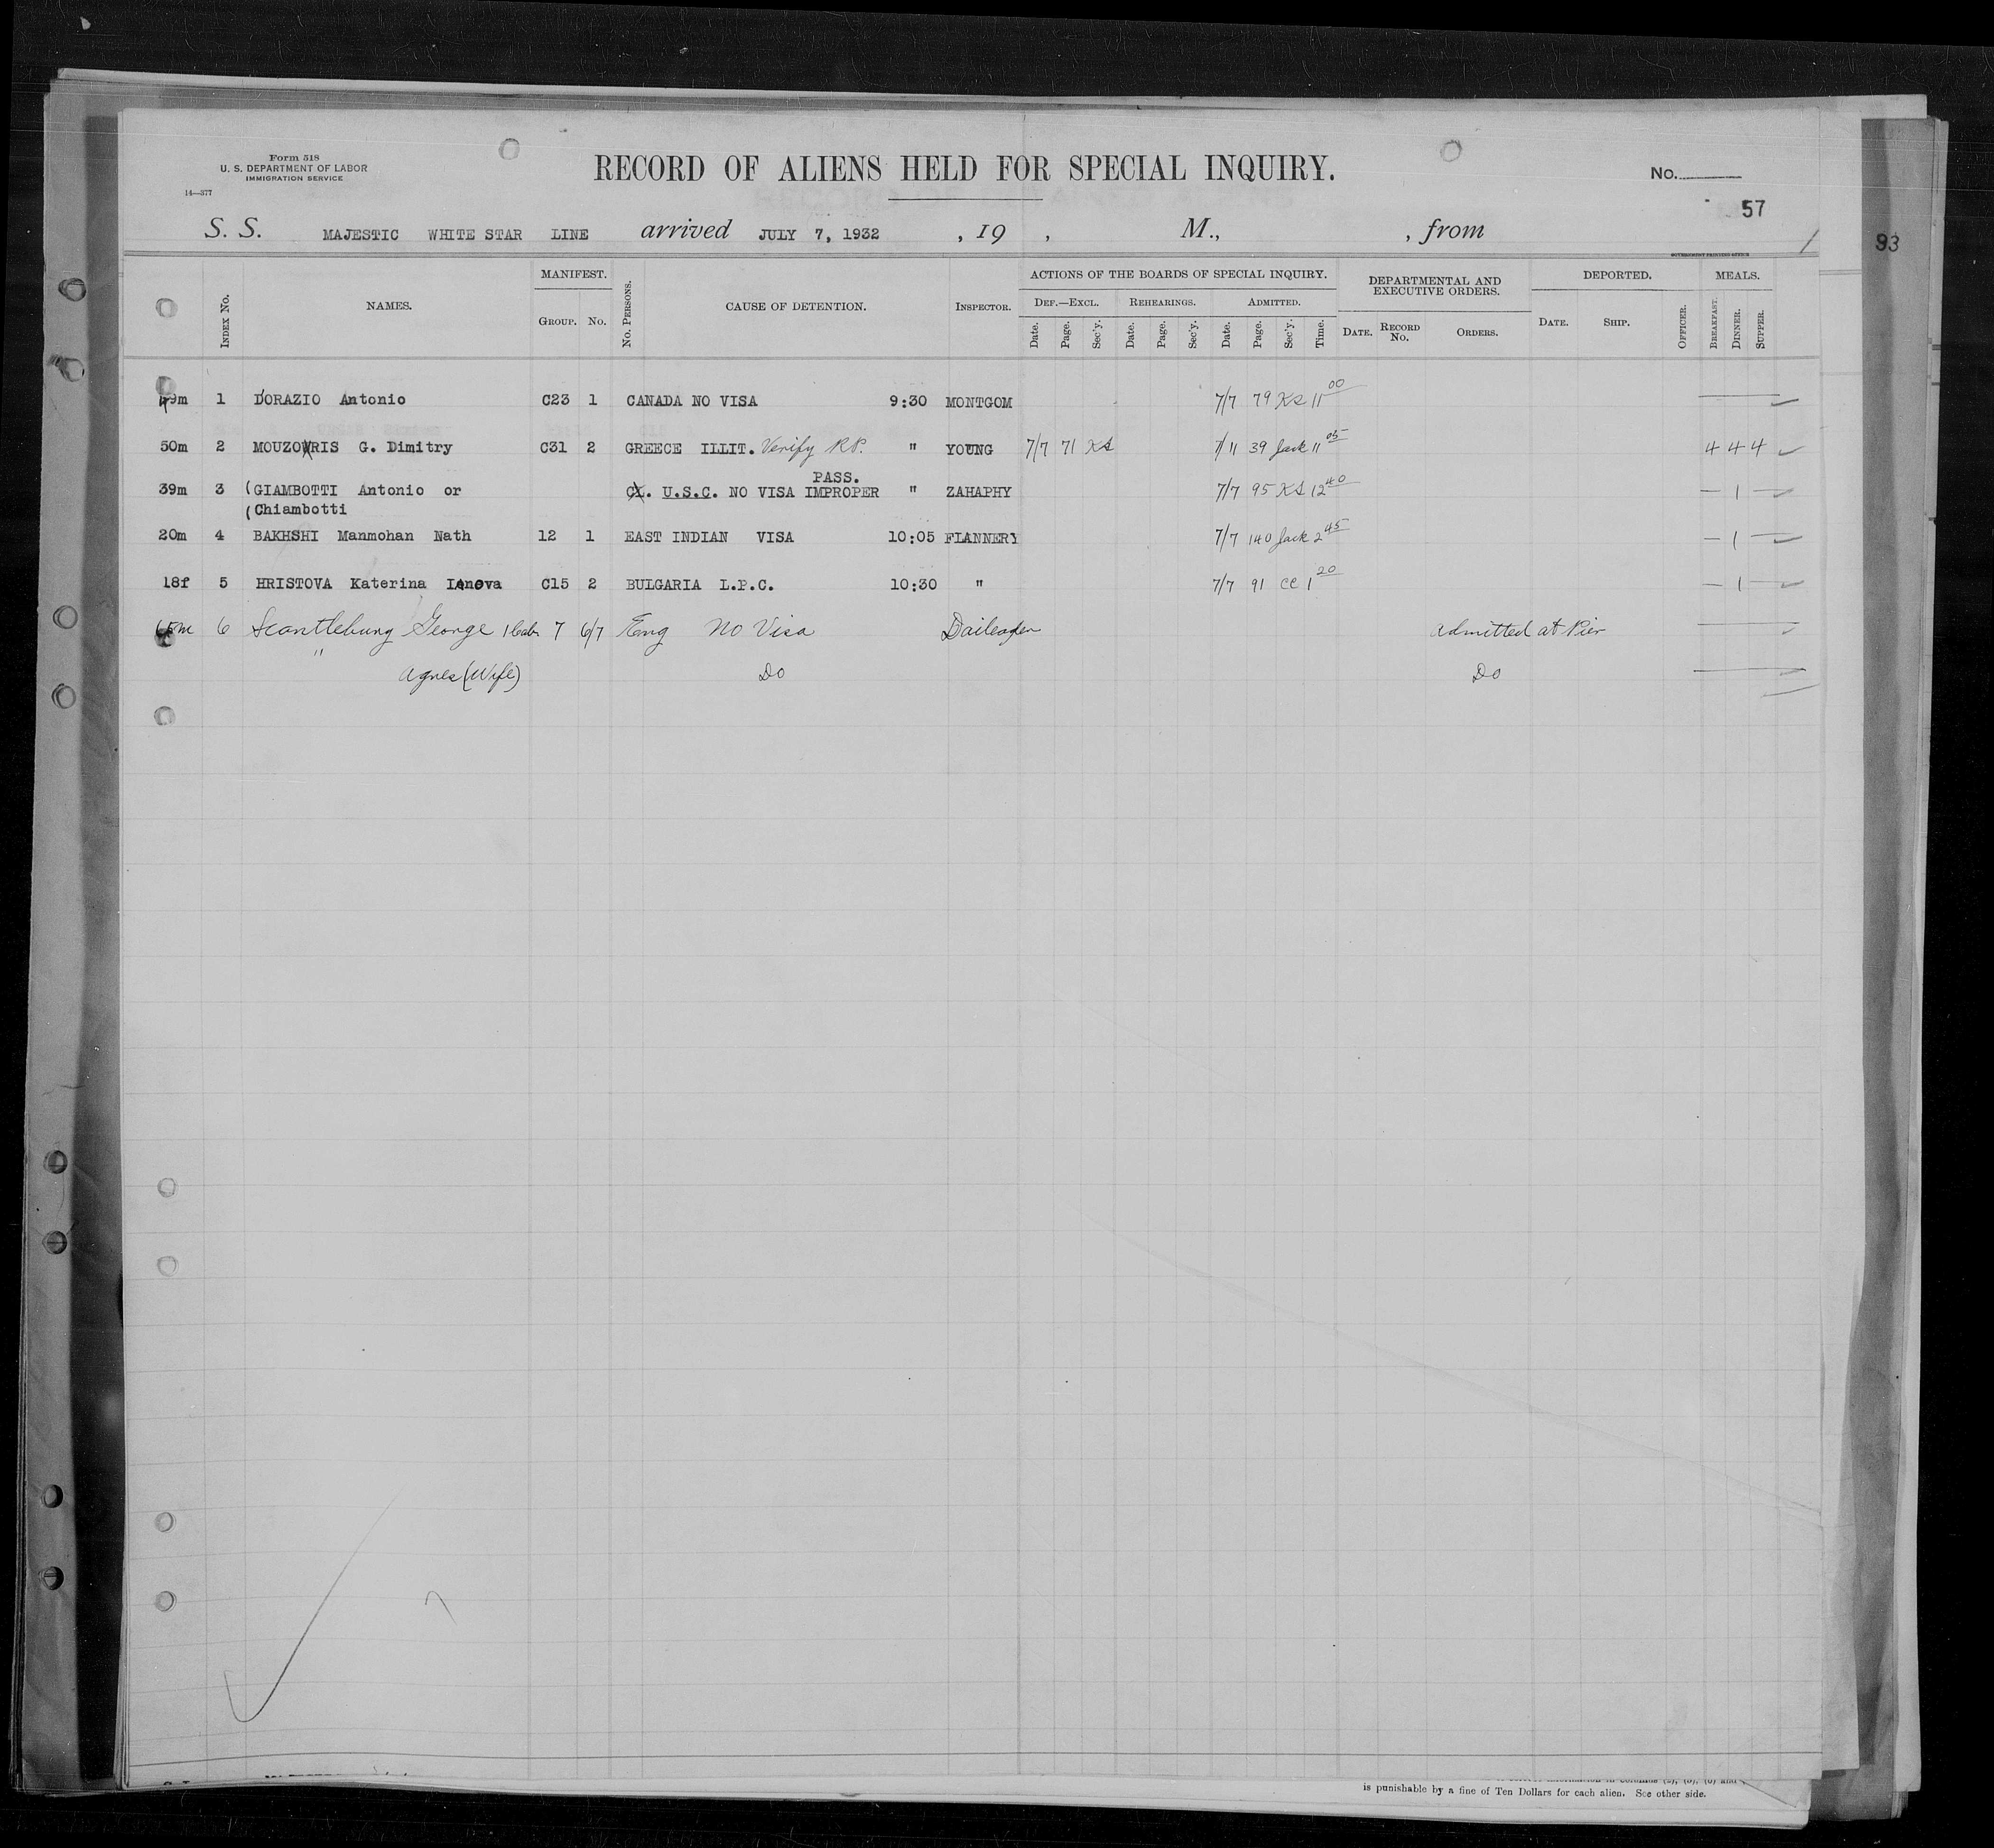 Form 518
U. S. DEPARTMENT OF LABOR
IMMIGRATION SERVICE
14—377
RECORD OF ALIENS HELD FOR SPECIAL INQUIRY.
No.
57
93
S. S. MAJESTIC WHITE STAR LINE arrived JULY 7, 1932 , 19 , M., , from
GOVERNMENT PRINTING OFFICE
INDEX No. NAMES. MANIFEST. GROUP. No. No. PERSONS. CAUSE OF DETENTION. INSPECTOR. ACTIONS OF THE BOARDS OF SPECIAL INQUIRY. DEPARTMENTAL AND EXECUTIVE ORDERS. DEPORTED. MEALS.
DEF.—EXCL. REHEARINGS. ADMITTED.
Date. Page. Sec'y. Date. Page. Sec'y. Date. Page. Sec'y. Time. DATE. RECORD No. ORDERS. DATE. SHIP. OFFICER. BREAKFAST. DINNER. SUPPER.
49m 1 D'ORAZIO Antonio C23 1 CANADA NO VISA 9:30 MONTGOM 7/7 79 KS 11 00
50m 2 MOUZOURIS G. Dimitry C31 2 GREECE ILLIT. Verify RP. " YOUNG 7/7 71 KS 7/11 39 Jack 11 05 4 4 4
PASS.
39m 3 (GIAMBOTTI Antonio or U.S.C. NO VISA IMPROPER " ZAHAPHY 7/7 95 KS 12 40 — 1 —
(Chiambotti
20m 4 BAKHSHI Manmohan Nath 12 1 EAST INDIAN VISA 10:05 FLANNERY 7/7 140 Jack 2 45 — 1 —
18f 5 HRISTOVA Katerina C15 2 BULGARIA L.P.C. 10:30 " 7/7 91 CC 1 20 — 1 —
65m 6 Scantlebury George 1 Cab. 7 6/7 Eng No Visa Admitted at Pier
" Agnes (Wife) Do Do
is punishable by a fine of Ten Dollars for each alien. See other side.